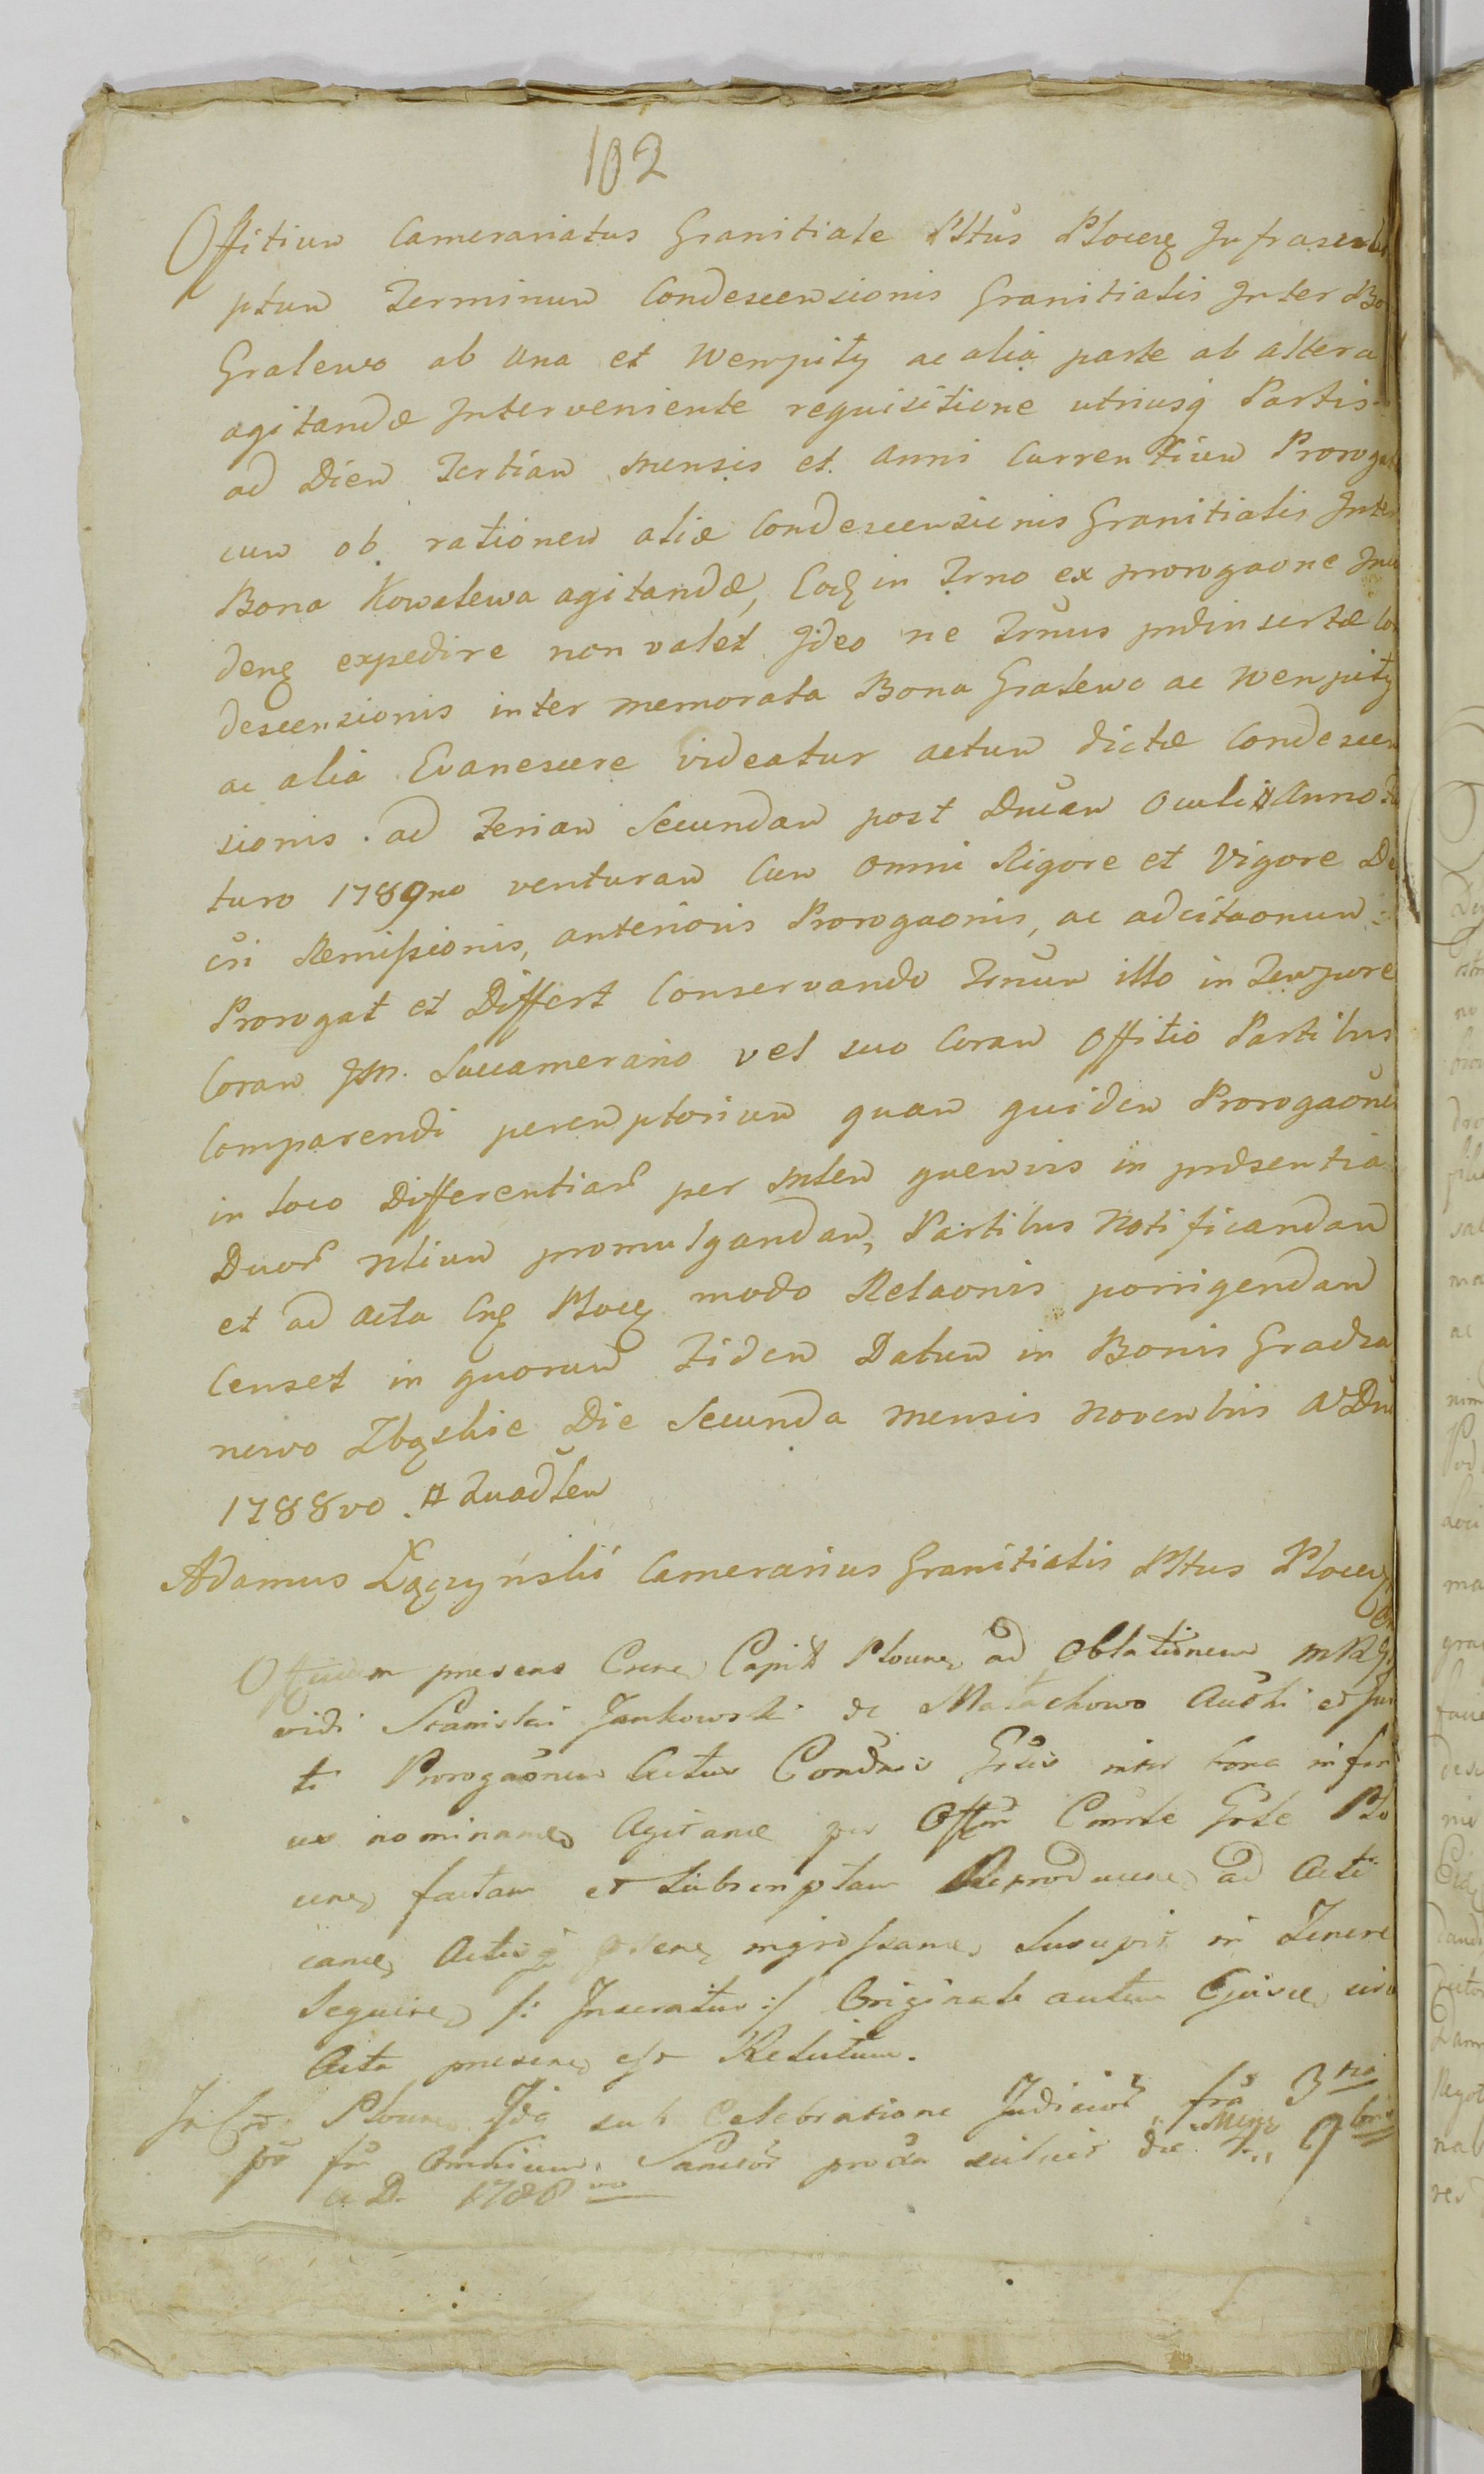 102
Offitium Camerariatus Granitiale Pttus Plocen Infrascri
ptum Terminum Condescensionis Granitialis Inter Bo
Gralewo ab una et Wempiły ac alia parte ab altera
agitandæ Interveniente requisitione utriusq Partis
ad Diem Tertiam mensis et Anni Currentium Prorogat
cum ob rationem aliæ Condescensionis Granitialis Inter
Bona Kowalewa agitandæ, Eod in Trno ex prorogaone
dene expedire non valet Ideo ne Trnus prdinsertæ Con
descensionis inter memorata Bona Gralewo ac Wempiły
ac alia Evanescere videatur actum dictæ Condescen
sionis ad Feriam Secundam post Dnicam Oculi # Anno Fu
turo 1789no venturam Cum Omni Rigore et Vigore De
cti Remissionis, anterioris Prorogaonis, ac adcitaonum
Prorogat et Differt Conservando Trnum illo in Tempore
Coram JM. Succamerario vel suo Coram Offitio Partibus
Comparendi peremptorium quam quidem Prorogaone
in loco Differentiar per Mtem quemvis in prdsentia
Duor Ntium promulgandam, Partibus Notificandam
et ad Acta Cne Plocen modo Relaonis porrigendam
Censet in quorum Fidem Datum in Bonis Gradza
newo Zbąskie Die Secunda mensis Novembris A Dni
1788vo. # Quadlem
Adamus Łączyński Camerarius Granitialis Pttus Plocen
Officium presens Crene Capit Plocen ad Oblationem
vidi Stanislai Jankowski de Małachowo
ti Prorogaonem Actus Condnis Grlis inter bona infer
us nominane Agitane per Offm Cmrle Grle Plo
cene factam et Subscriptam Reproducene ad Acti
cane Actisq psene ingrossane Suscepit in Tenore
Sequene /: Inseratur :/ Originale autem Ejusce circa
Acta presene est Relictum.
Plocene sub Celebratione Judicior fra 3tia
po fm Omnium Sanctor proxa Mens 9bris
A D. 1788vo